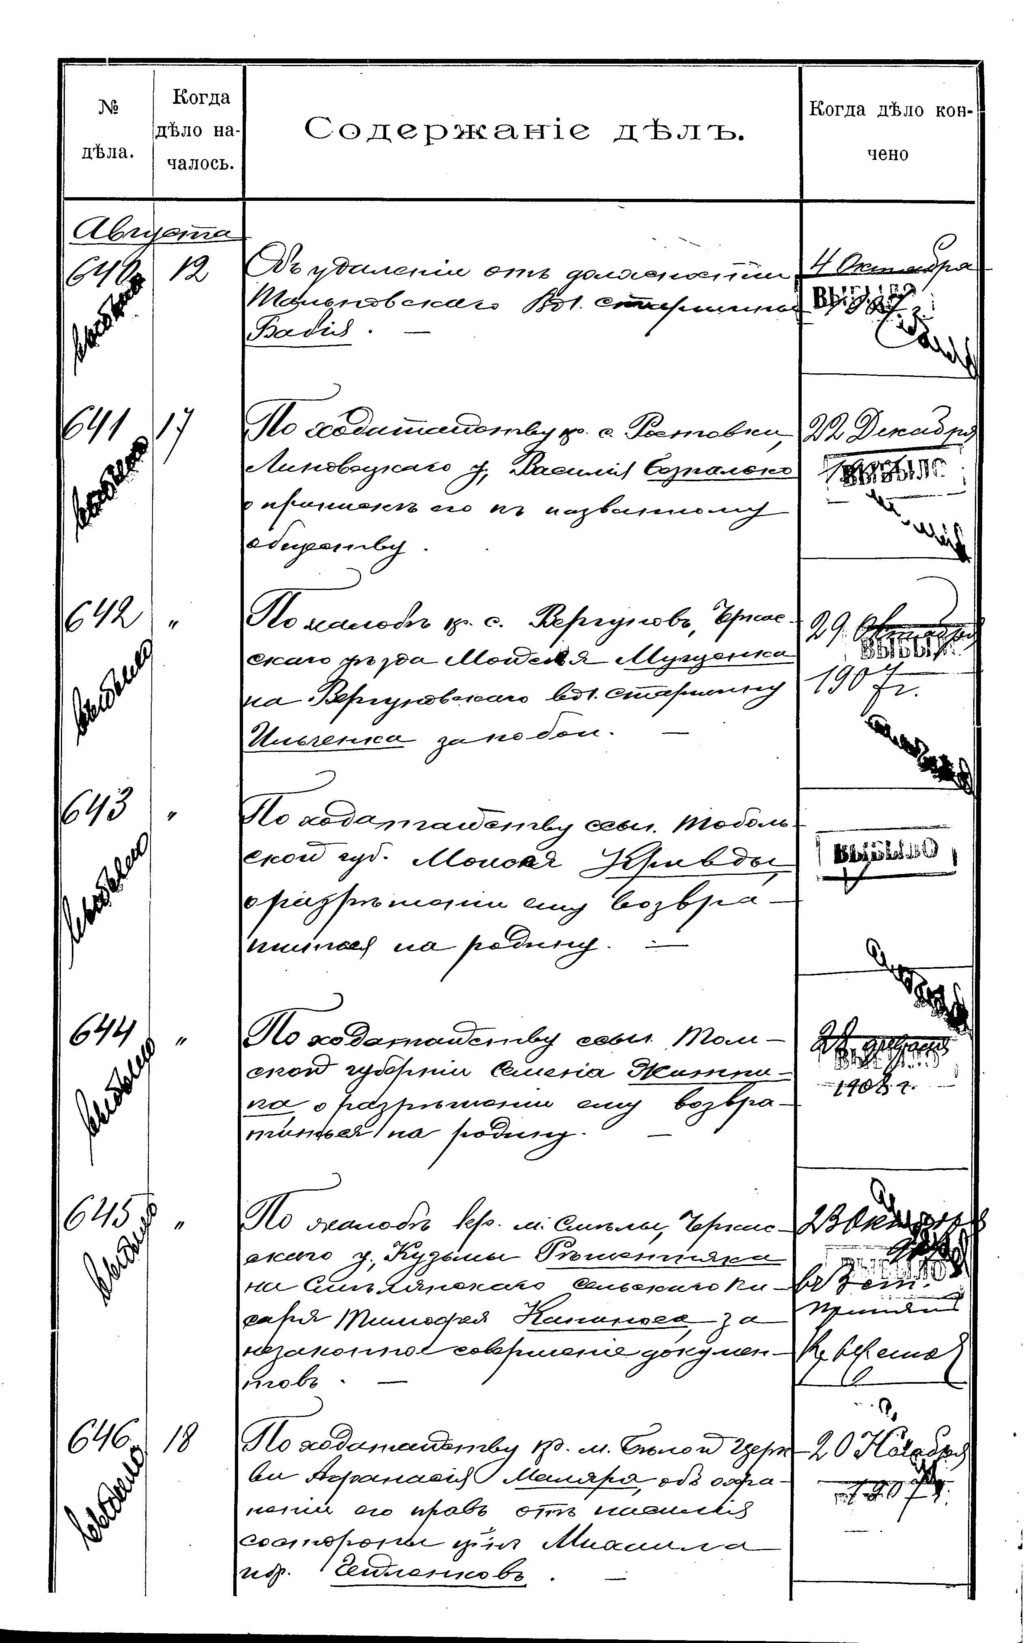 № дѣла.
Когда дѣло на-
чалось.
Содержаніе дѣлъ.
Когда дѣло кон-
чено
Августа
640 12 Объ удаленіи отъ должности 4 Октября
Тальновскаго вол. старшины 1907 г.
Бабія. —
выбыло
ВЫБЫЛО
641 17 По ходатайству кр. с. Ростовки, 22 Декабря
Липовецкаго у, Василія Безпалоко
о припискѣ его къ названному
обществу.
выбыло
ВЫБЫЛО
642 " По жалобѣ кр. с. Вергуновъ, Черкас-
скаго уѣзда Моисея Мугценка
на Вергуновскаго вол. старшину
Ильченка за побои. —
29 Октября
1907 г.
выбыло
ВЫБЫЛО
643 " По ходатайству ссыл. Тоболь-
ской губ. Моисея Кривды,
о разрѣшеніи ему возвра-
титься на родину. —
выбыло
ВЫБЫЛО
644 " По ходатайству ссыл. Том-
ской губерніи Семена Житни-
ка, о разрѣшеніи ему возвра-
титься на родину. —
1908 г.
выбыло
ВЫБЫЛО
645 " По жалобѣ кр. м. Смѣлы, Черкас-
скаго у, Кузьмы Рѣшетняка
на Смѣлянскаго сельскаго пи-
саря Тимофея Капаноса, за
незаконное совершеніе докумен-
товъ. —
23 Октября
въ 3 ст.
выбыло
ВЫБЫЛО
646 18 По ходатайству кр. м. Бѣлой Церк-
ви Афанасія Маляра, объ охра-
неніи его правъ отъ насилія
со стороны Михаила
Чепленковъ. —
20 Ноября
1907 г.
выбыло